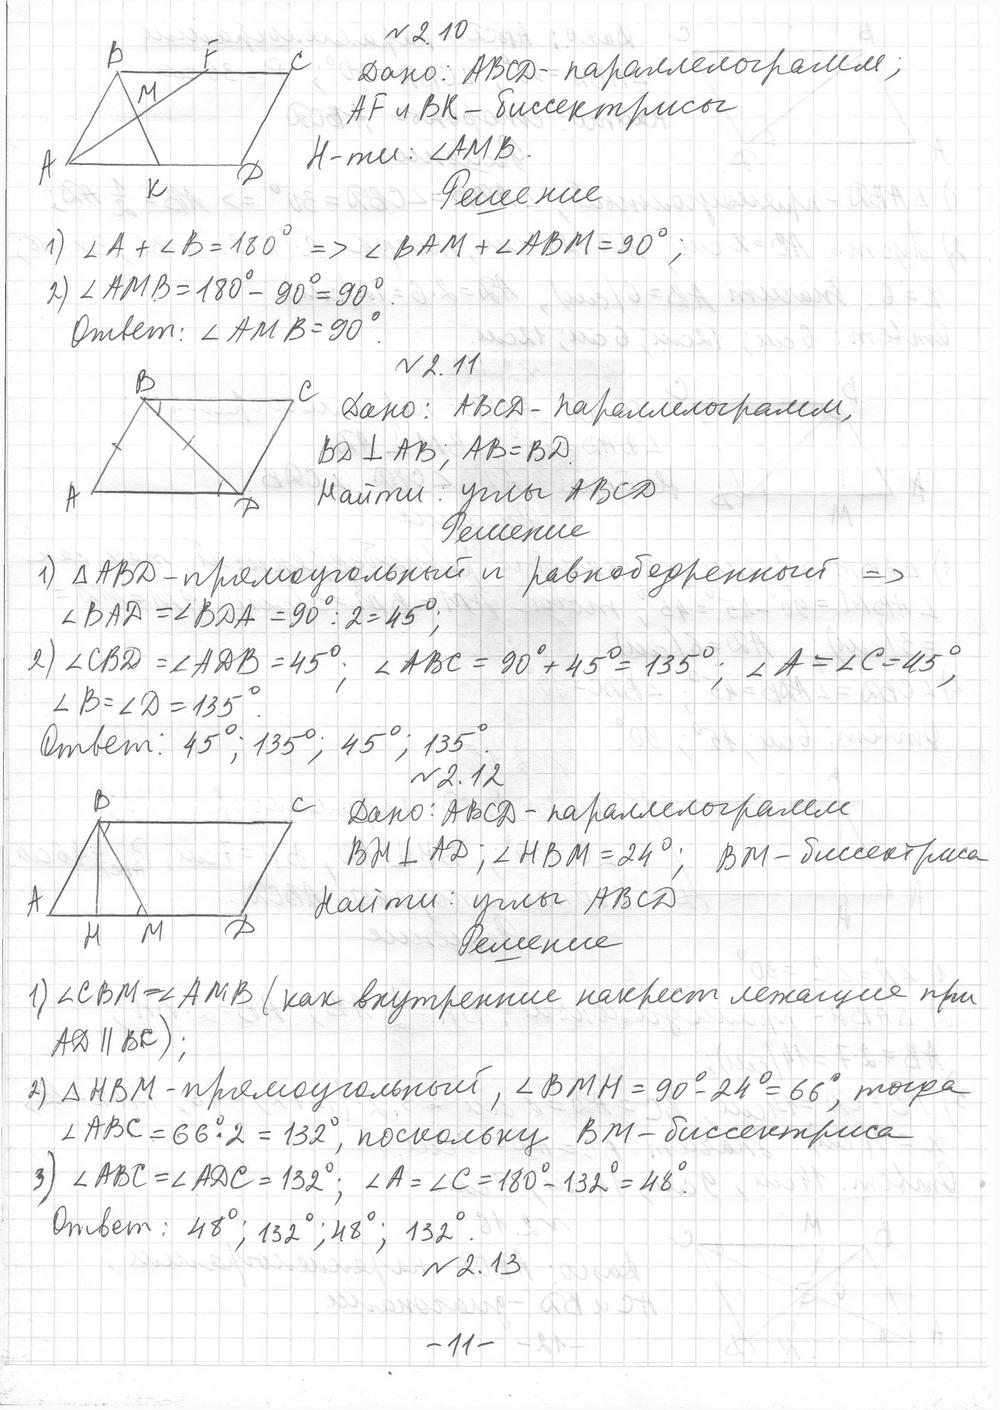 №2.10
B F C
M
A K D
Дано: ABCD - параллелограмм;
AF и BK - биссектрисы
Н-ти: ∠AMB.
Решение
1) ∠A + ∠B = 180° => ∠BAM + ∠ABM = 90°;
2) ∠AMB = 180° - 90° = 90°.
Ответ: ∠AMB = 90°.
№2.11
B C
A D
Дано: ABCD - параллелограмм,
BD ⊥ AB; AB = BD.
Найти: углы ABCD
Решение
1) △ABD - прямоугольный и равнобедренный =>
∠BAD = ∠BDA = 90° : 2 = 45°;
2) ∠CBD = ∠ADB = 45°; ∠ABC = 90° + 45° = 135°; ∠A = ∠C = 45°,
∠B = ∠D = 135°.
Ответ: 45°; 135°; 45°; 135°.
№2.12
B C
A H M D
Дано: ABCD - параллелограмм
BH ⊥ AD; ∠HBM = 24°; BM - биссектриса
Найти: углы ABCD
Решение
1) ∠CBM = ∠AMB (как внутренние накрест лежащие при
AD || BC);
2) △HBM - прямоугольный, ∠BMH = 90° - 24° = 66°, тогда
∠ABC = 66° · 2 = 132°, поскольку BM - биссектриса
3) ∠ABC = ∠ADC = 132°; ∠A = ∠C = 180° - 132° = 48°.
Ответ: 48°; 132°; 48°; 132°.
№2.13
-11-